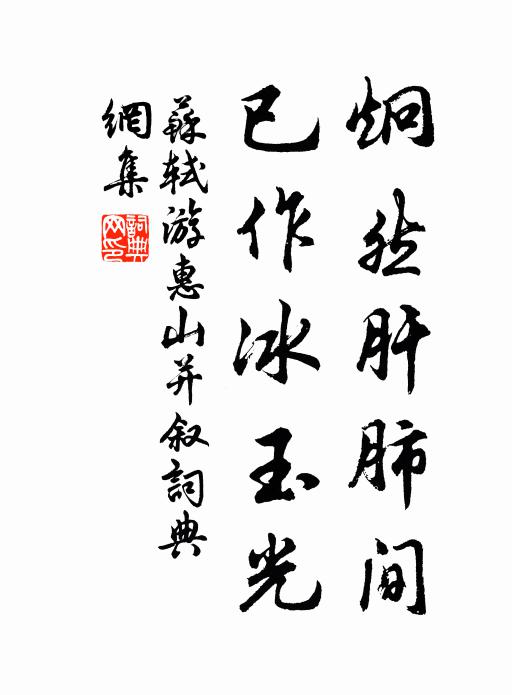 炯然肝肺間
已作冰玉光
蘇軾游惠山并叙詞典
網集
詞典
网印